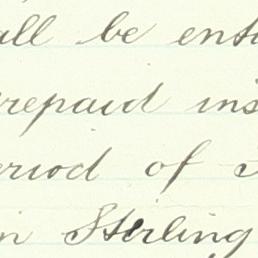 all be ent
repaid ins
eriod of
in Sterling